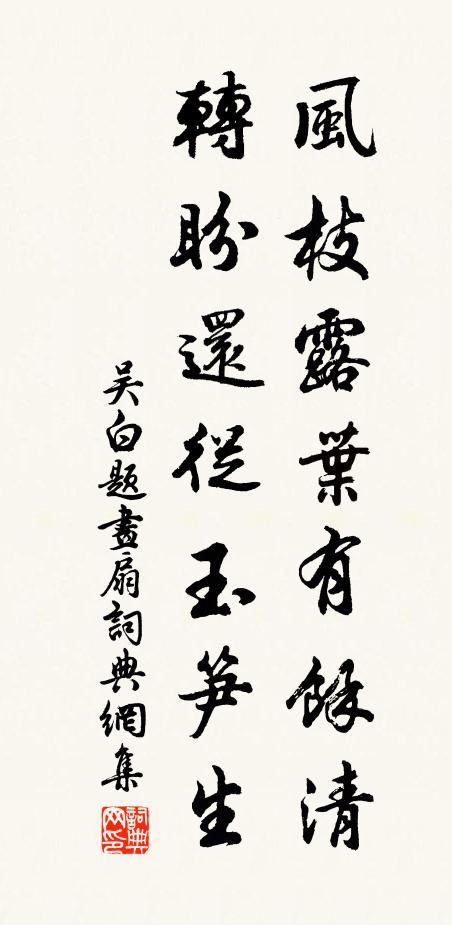 風枝露葉有餘清
轉盼還從玉笋生
吴白题畫扇詞典網集
詞典
网印